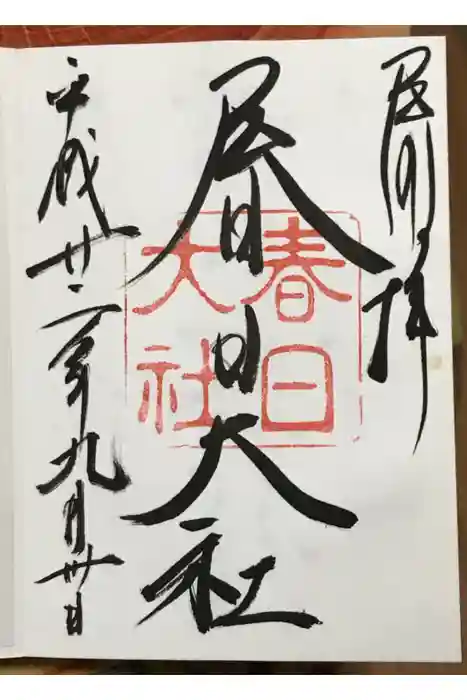 奉拝
春日大社
春日
大社
平成廿二年九月卅日